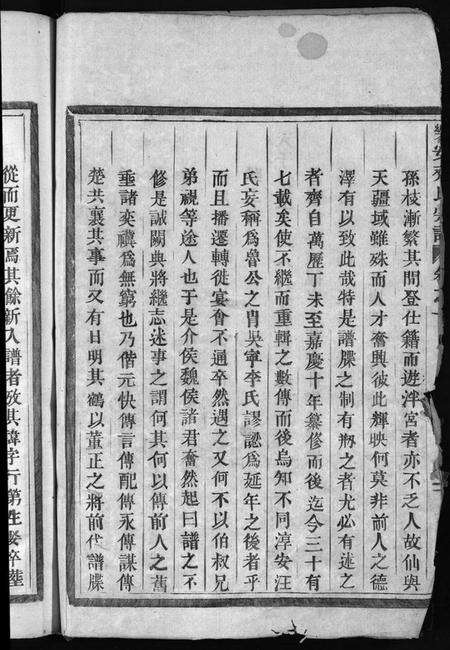 孫枝漸繁其間登仕籍而遊泮宮者亦不乏人故仙與
天疆域雖殊而人才奮興彼此輝映何莫非前人之德
澤有以致此哉特是譜牒之制有刱之者尤必有述之
者齊自萬歷丁未至嘉慶十年纂修而後迄今三十有
七載矣使不繼而重輯之數傳而後烏知不同淳安汪
氏妄稱爲魯公之肖吳寧李氏謬認爲延年之後者乎
而且播遷轉徙宴會不通卒然遇之又何不以伯叔兄
弟視等途人也于是介侯魏侯諸君奮然起曰譜之不
修是誠闕典將繼志述事之謂何其何以傳前人之舊
垂諸奕禩爲無窮也乃偕元快傳言傳配傳永傳謀傳
楚共襄其事而又有日明其鶴以董正之將前代譜牒
從而更新焉其餘新入譜者攷其諱字行第生娶卒塟